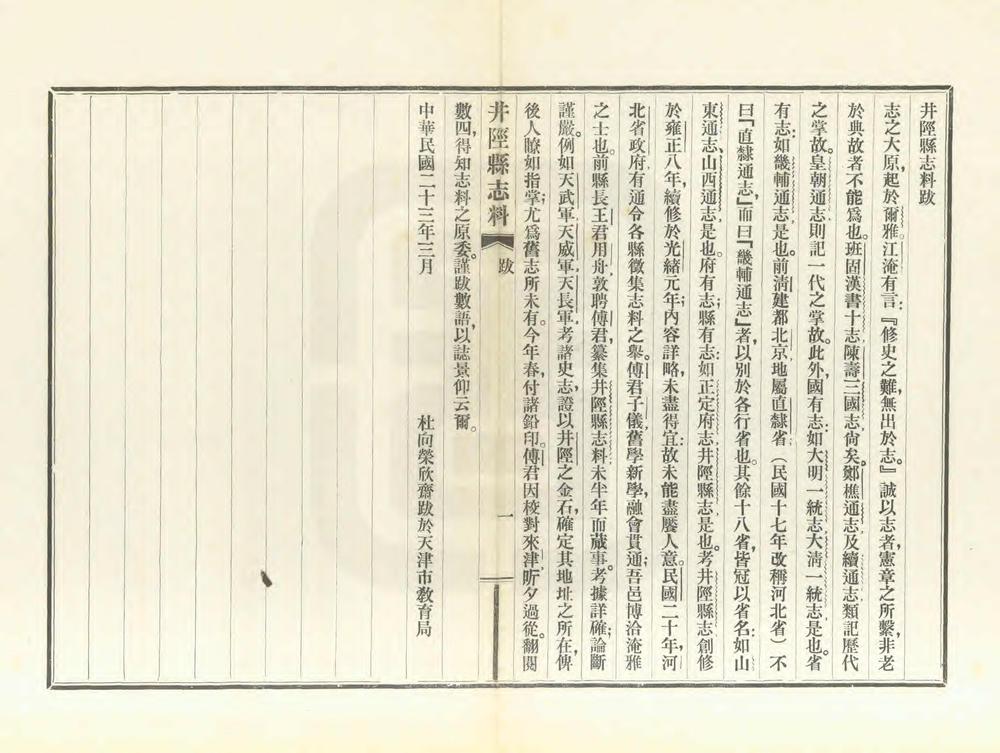 井陘縣志料跋
志之大原，起於爾雅。江淹有言：『修史之難，無出於志。』誠以志者，憲章之所繫，非老
於典故者不能爲也。班固漢書十志，陳壽三國志尙矣。鄭樵通志，及續通志，類記歷代
之掌故。皇朝通志，則記一代之掌故。此外，國有志：如大明一統志，大淸一統志是也。省
有志：如畿輔通志是也。前淸建都北京，地屬直隸省，（民國十七年改稱河北省）不
曰『直隸通志』，而曰『畿輔通志』者，以別於各行省也。其餘十八省，皆冠以省名：如山
東通志，山西通志是也。府有志；縣有志：如正定府志，井陘縣志是也。考井陘縣志，創修
於雍正八年，續修於光緒元年；內容詳略，未盡得宜：故未能盡饜人意。民國二十年，河
北省政府，有通令各縣徵集志料之舉。傅君子儀，舊學新學，融會貫通；吾邑博洽淹雅
之士也。前縣長王君用舟，敦聘傅君，纂集井陘縣志料，未半年而蕆事。考據詳確；論斷
謹嚴。例如天武軍，天威軍，天長軍，考諸史志，證以井陘之金石，確定其地址之所在，俾
後人瞭如指掌；尤爲舊志所未有。今年春，付諸鉛印。傅君因校對來津，昕夕過從。翻閱
井陘縣志料　跋　一
數四，得知志料之原委。謹跋數語，以誌景仰云爾。
中華民國二十三年三月　杜向榮欣齋跋於天津市敎育局